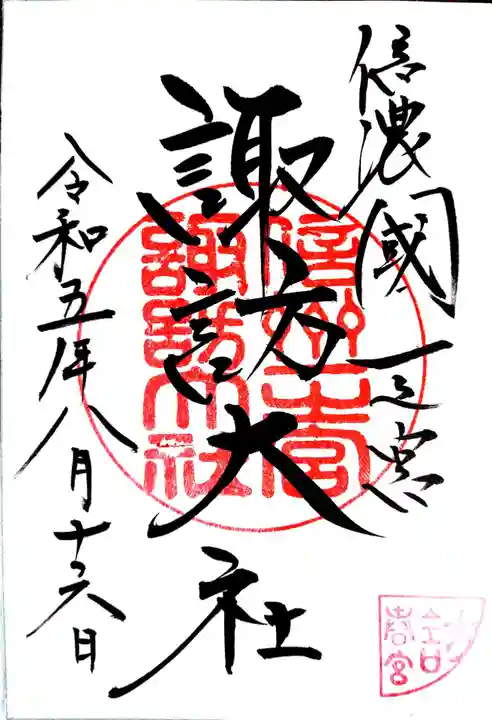 信濃國一之宮
諏訪大社
令和五年八月十六日
信州一之宮
諏訪大社
春宮